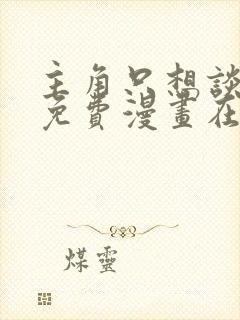 主角只想談
免費漫畫在
煤靈